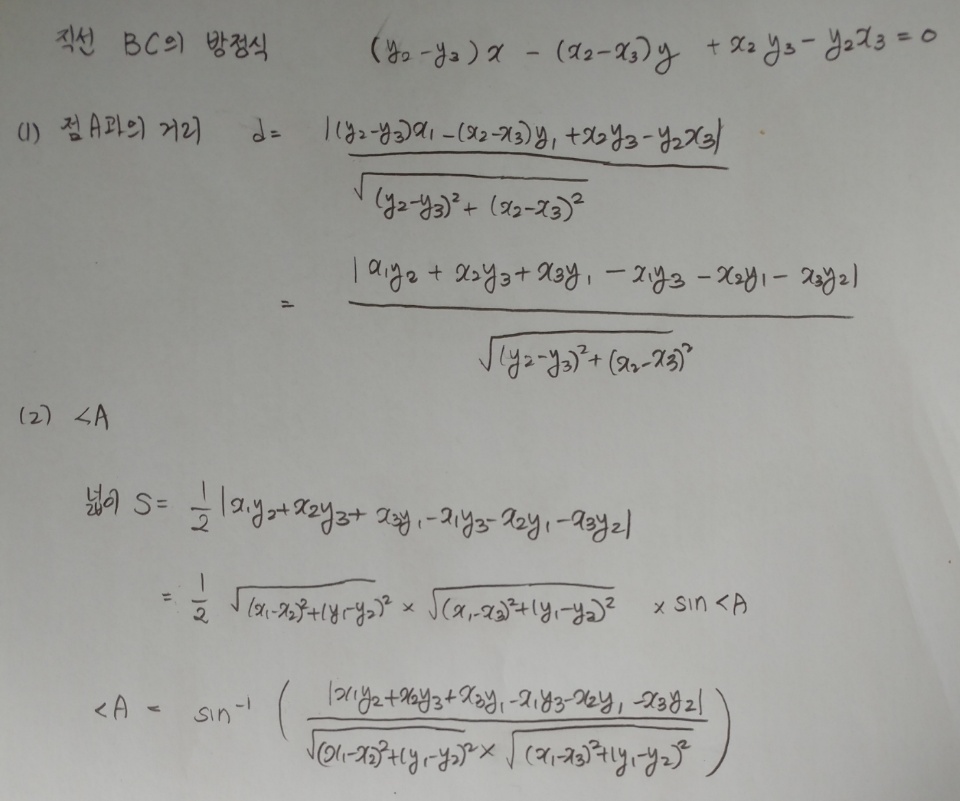 직선 BC의 방정식 (y₂-y₃)x - (x₂-x₃)y + x₂y₃ - y₂x₃ = 0
(1) 점 A과의 거리 d= |(y₂-y₃)x₁-(x₂-x₃)y₁+x₂y₃-y₂x₃|
√(y₂-y₃)²+(x₂-x₃)²
= |x₁y₂+x₂y₃+x₃y₁-x₁y₃-x₂y₁-x₃y₂|
√(y₂-y₃)²+(x₂-x₃)²
(2) <A
넓이 S= 1/2 |x₁y₂+x₂y₃+x₃y₁-x₁y₃-x₂y₁-x₃y₂|
= 1/2 √(x₁-x₂)²+(y₁-y₂)² × √(x₁-x₃)²+(y₁-y₂)² × sin <A
<A = sin⁻¹ ( |x₁y₂+x₂y₃+x₃y₁-x₁y₃-x₂y₁-x₃y₂|
√(x₁-x₂)²+(y₁-y₂)² × √(x₁-x₃)²+(y₁-y₂)² )